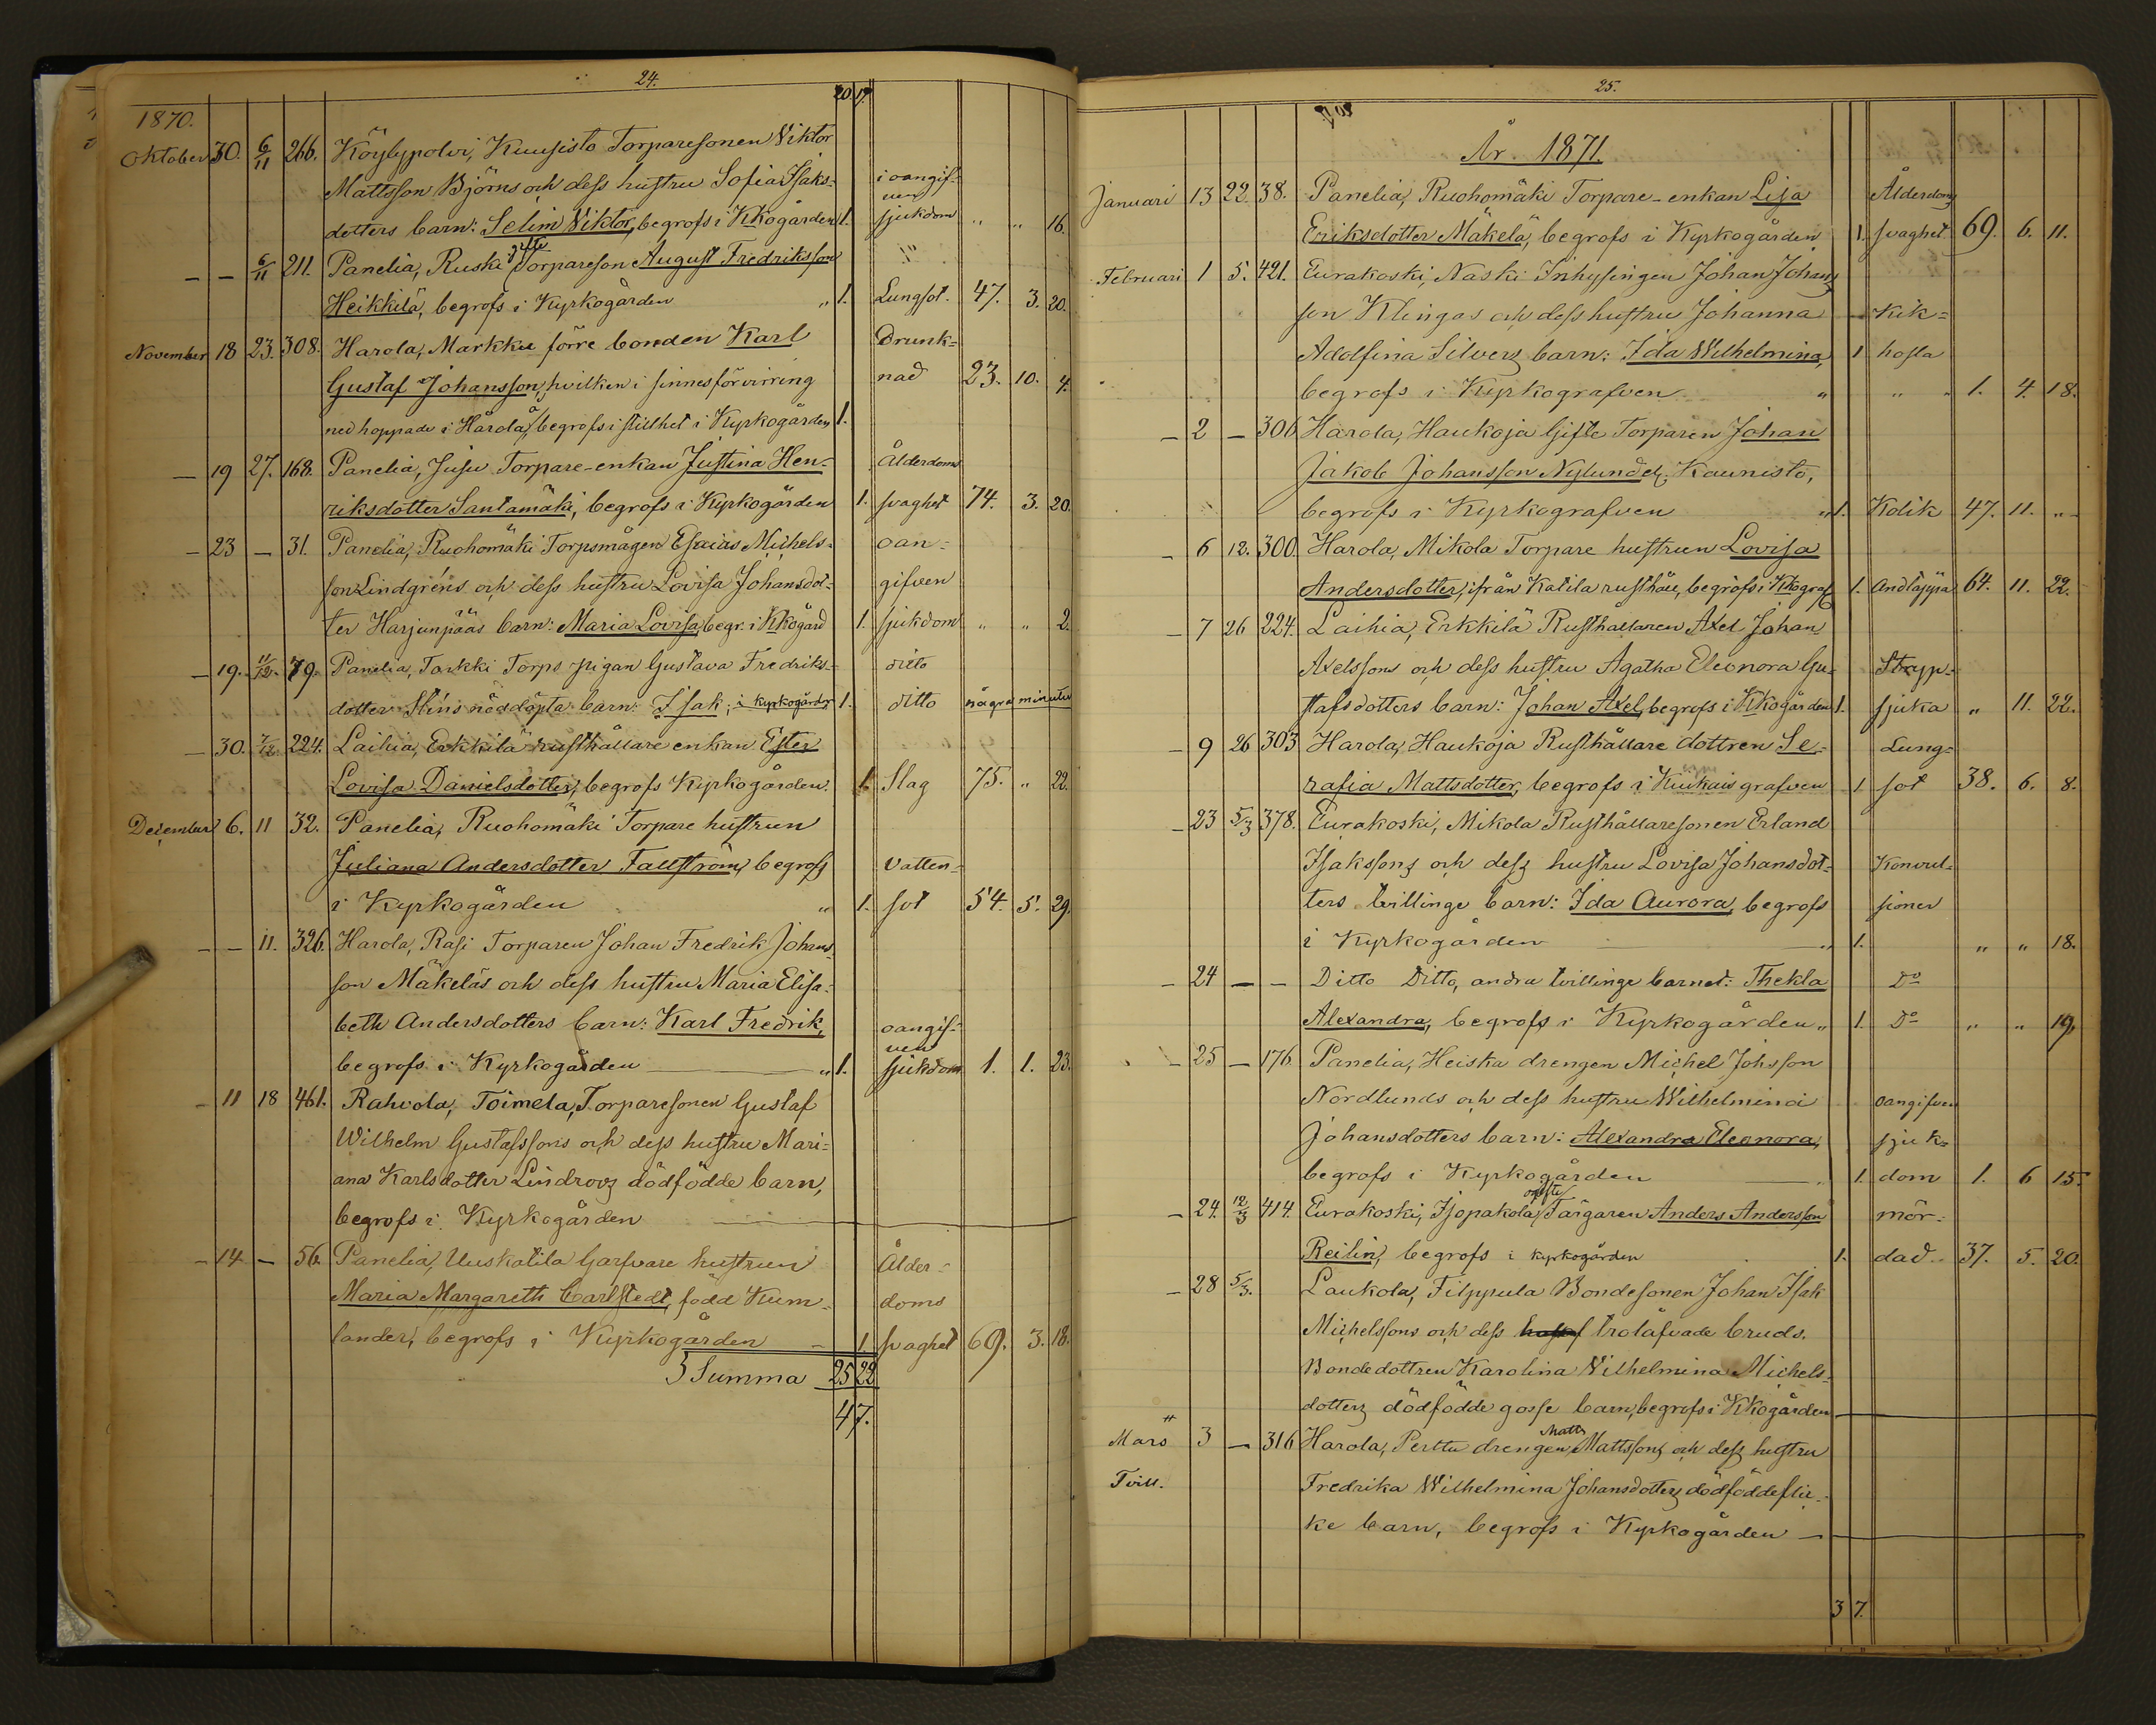 24.
1870.
20 17
Oktober 30. 6/11 266. Köylypolvi, Kuusisto Torparesonen Viktor
Mattsson Björns och dess hustru Sofia Isaks- i oangif-
dotters barn: Selim Viktor, begrofs i Kkogården 1. ven sjukdom " " 16.
— — 6/11 211. Panelia, Ruski gifte Torpareson August Fredriksson "
Heikkilä, begrofs i Kyrkogården " 1. Lungsot. 47. 3. 20.
November 18 23. 308. Harola, Markku förre bonden Karl Drunk-
Gustaf Johansson, hvilken i sinnesförvirring nad 23. 10. 4.
ned hoppade i Harola å, begrofs i stillhet i Kyrkogården 1.
— 19 27. 168. Panelia, Jusu Torpare-enkan Justina Hen- Ålderdoms
riksdotter Santamäki, begrofs i Kyrkogården 1. svaghet 74. 3. 20.
— 23 — 31. Panelia, Ruohomäki Torpsmågen Esaias Michels- oan-
son Lindgréns och dess hustru Lovisa Johansdot- gifven
ter Harjunpääs barn: Maria Lovisa, begr. i Kkogård 1. sjukdom " " 2.
— 19. 11/12. 79. Panelia, Torkki Torps pigan Gustava Fredriks- ditto
dotter Stens nöddöpta barn: Isak, i kyrkogården 1. ditto några minuter
— 30. 7/12 224. Laihia, Erkkilä rusthållare enkan Ester
Lovisa Danielsdotter, begrofs Kyrkogården. 1. Slag 75. " 22.
December 6. 11 32. Panelia, Ruohomäki Torpare hustrun
Juliana Andersdotter Fallström, begrofs Vatten-
i Kyrkogården " 1. sot 54. 5. 29.
— — 11. 326. Harola, Rasi Torparen Johan Fredrik Johans-
son Mäkeläs och dess hustru Maria Elisa-
beth Andersdotters barn: Karl Fredrik, oangif-
begrofs i Kyrkogården " 1. ven sjukdom 1. 1. 23.
— 11 18 461. Rahvola, Toimela, Torparesonen Gustaf
Wilhelm Gustafssons och dess hustru Mari-
ana Karlsdotter Lindroos dödfödde barn,
begrofs i Kyrkogården
— 14 — 56. Panelia, Uuskatila Garfvare hustrun Ålder-
Maria Margareth Carlstedt, född Kum- doms
lander, begrofs i Kyrkogården — 1. svaghet 69. 3. 18.
Summa 25 22
47.
25.
År 1871.
Januari 13 22. 38. Panelia, Ruohomäki Torpare-enkan Lisa Ålderdoms
Eriksdotter Mäkelä, begrofs i Kyrkogården 1. svaghet 69. 6. 11.
Februari 1 5. 421. Eurakoski, Naski Inhysingen Johan Johans
son Klingas och dess hustru Johanna Kik-
Adolfina Silvers barn: Ida Wilhelmina, 1 hosta
begrofs i Kyrkografven " " " 1. 4. 18.
— 2 — 306 Harola, Haukoja Gifte Torparen Johan
Jakob Johansson Nylund el. Kaunisto,
begrofs i Kyrkografven " 1. Kolik 47. 11. "
— 6 12. 300. Harola, Mikola Torpare hustrun Lovisa
Andersdotter, ifrån Katila rusthåll, begrofs i Kkograf 1. Andtäppa 64. 11. 22.
— 7 26 224. Laihia, Erkkilä Rusthållaren Axel Johan
Axelssons och dess hustru Agatha Eleonora Gu- Stryp-
stafsdotters barn: Johan Axel, begrofs i Kkogården 1. sjuka " 11. 22.
— 9 26 303 Harola, Haukoja Rusthållare dottren Se- Lung-
rafia Mattsdotter, begrofs i Kiukais grafven 1. sot 38. 6. 8.
— 23 5/3 378. Eurakoski, Mikola Rusthållaresonen Erland
Isakssons och dess hustru Lovisa Johansdot- Konvul-
ters tvillinge barn: Ida Aurora, begrofs sioner
i Kyrkogården " 1. " " 18.
— 24 — — Ditto Ditto, andra tvillinge barnet: Thekla Do
Alexandra, begrofs i Kyrkogården " 1. Do " " 19.
— 25 — 176. Panelia, Heiska drengen Michel Johsson
Nordlunds och dess hustru Wilhelmina oangifven
Johansdotters barn: Alexandra Eleonora, sjuk-
begrofs i Kyrkogården 1. dom 1. 6 15.
— 24. 12/3 414. Eurakoski, Isopakola, ogifte Färgaren Anders Andersson mör-
Reilin, begrofs i kyrkogården 1. dad 37. 5. 20.
— 28 5/3. Laukola, Filppula Bondesonen Johan Isak
Michelssons och dess trolåfvade bruds.
Bondedottren Karolina Wilhelmina Michels-
dotters dödfödde gosse barn, begrofs i Kkogården
Mars 3 — 316 Harola, Perttu drengen Matts Mattssons och dess hustru
Tvill. Fredrika Wilhelmina Johansdotters dödfödde flic-
ke barn, begrofs i Kyrkogården —
3 7.